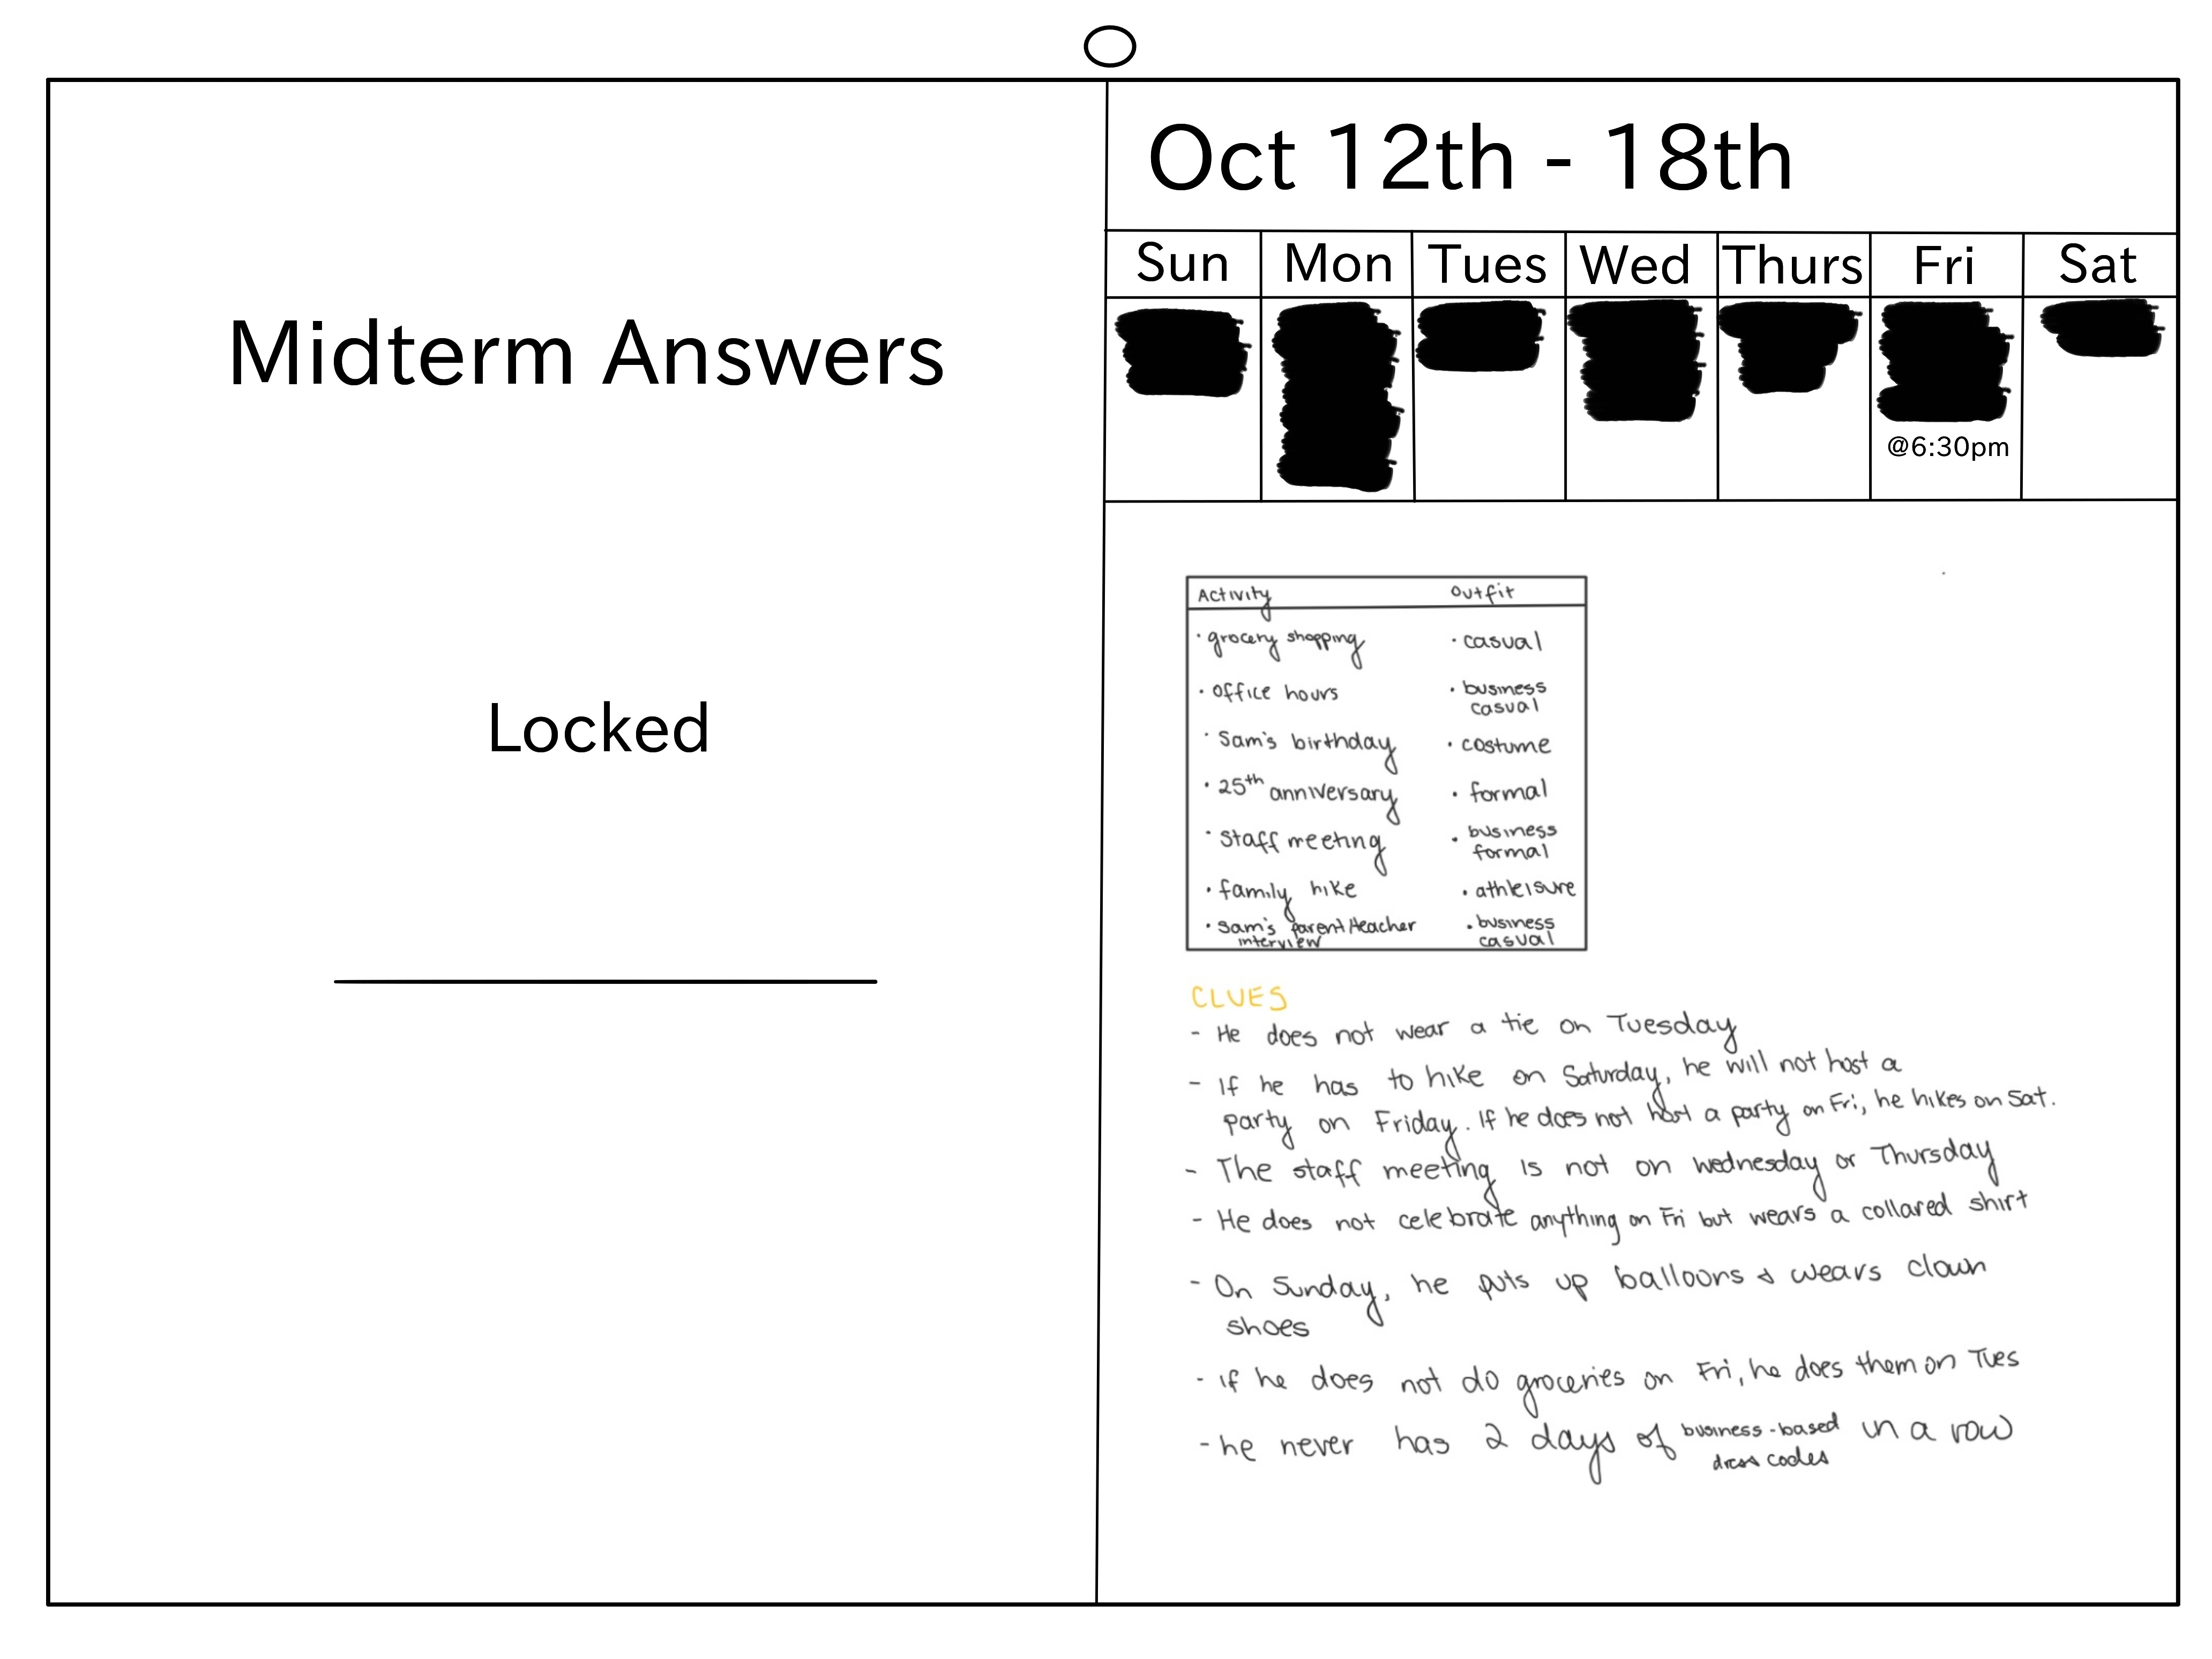 Midterm Answers
Locked
Oct 12th - 18th
Sun Mon Tues Wed Thurs Fri Sat
@6:30pm
Activity Outfit
• grocery shopping • casual
• office hours • business
casual
• Sam's birthday • costume
• 25th anniversary • formal
• staff meeting • business
formal
• family hike • athleisure
• Sam's parent/teacher • business
interview casual
CLUES
- He does not wear a tie on Tuesday
- If he has to hike on Saturday, he will not host a
party on Friday. If he does not host a party on Fri, he hikes on Sat.
- The staff meeting is not on wednesday or Thursday
- He does not celebrate anything on Fri but wears a collared shirt
- On Sunday, he puts up balloons & wears clown
shoes
- if he does not do groceries on Fri, he does them on Tues
- he never has 2 days of business-based in a row
dress codes